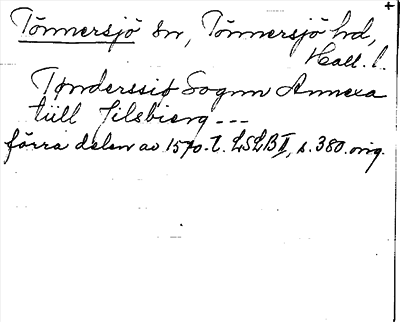 Tönnersjö sn, Tönnersjö hd,
Hall. l.
Tønderssiø Sognn Annexa
tiill Jilsbierg ---
förra delen av 1570-t. LSLB II, s. 380. orig.